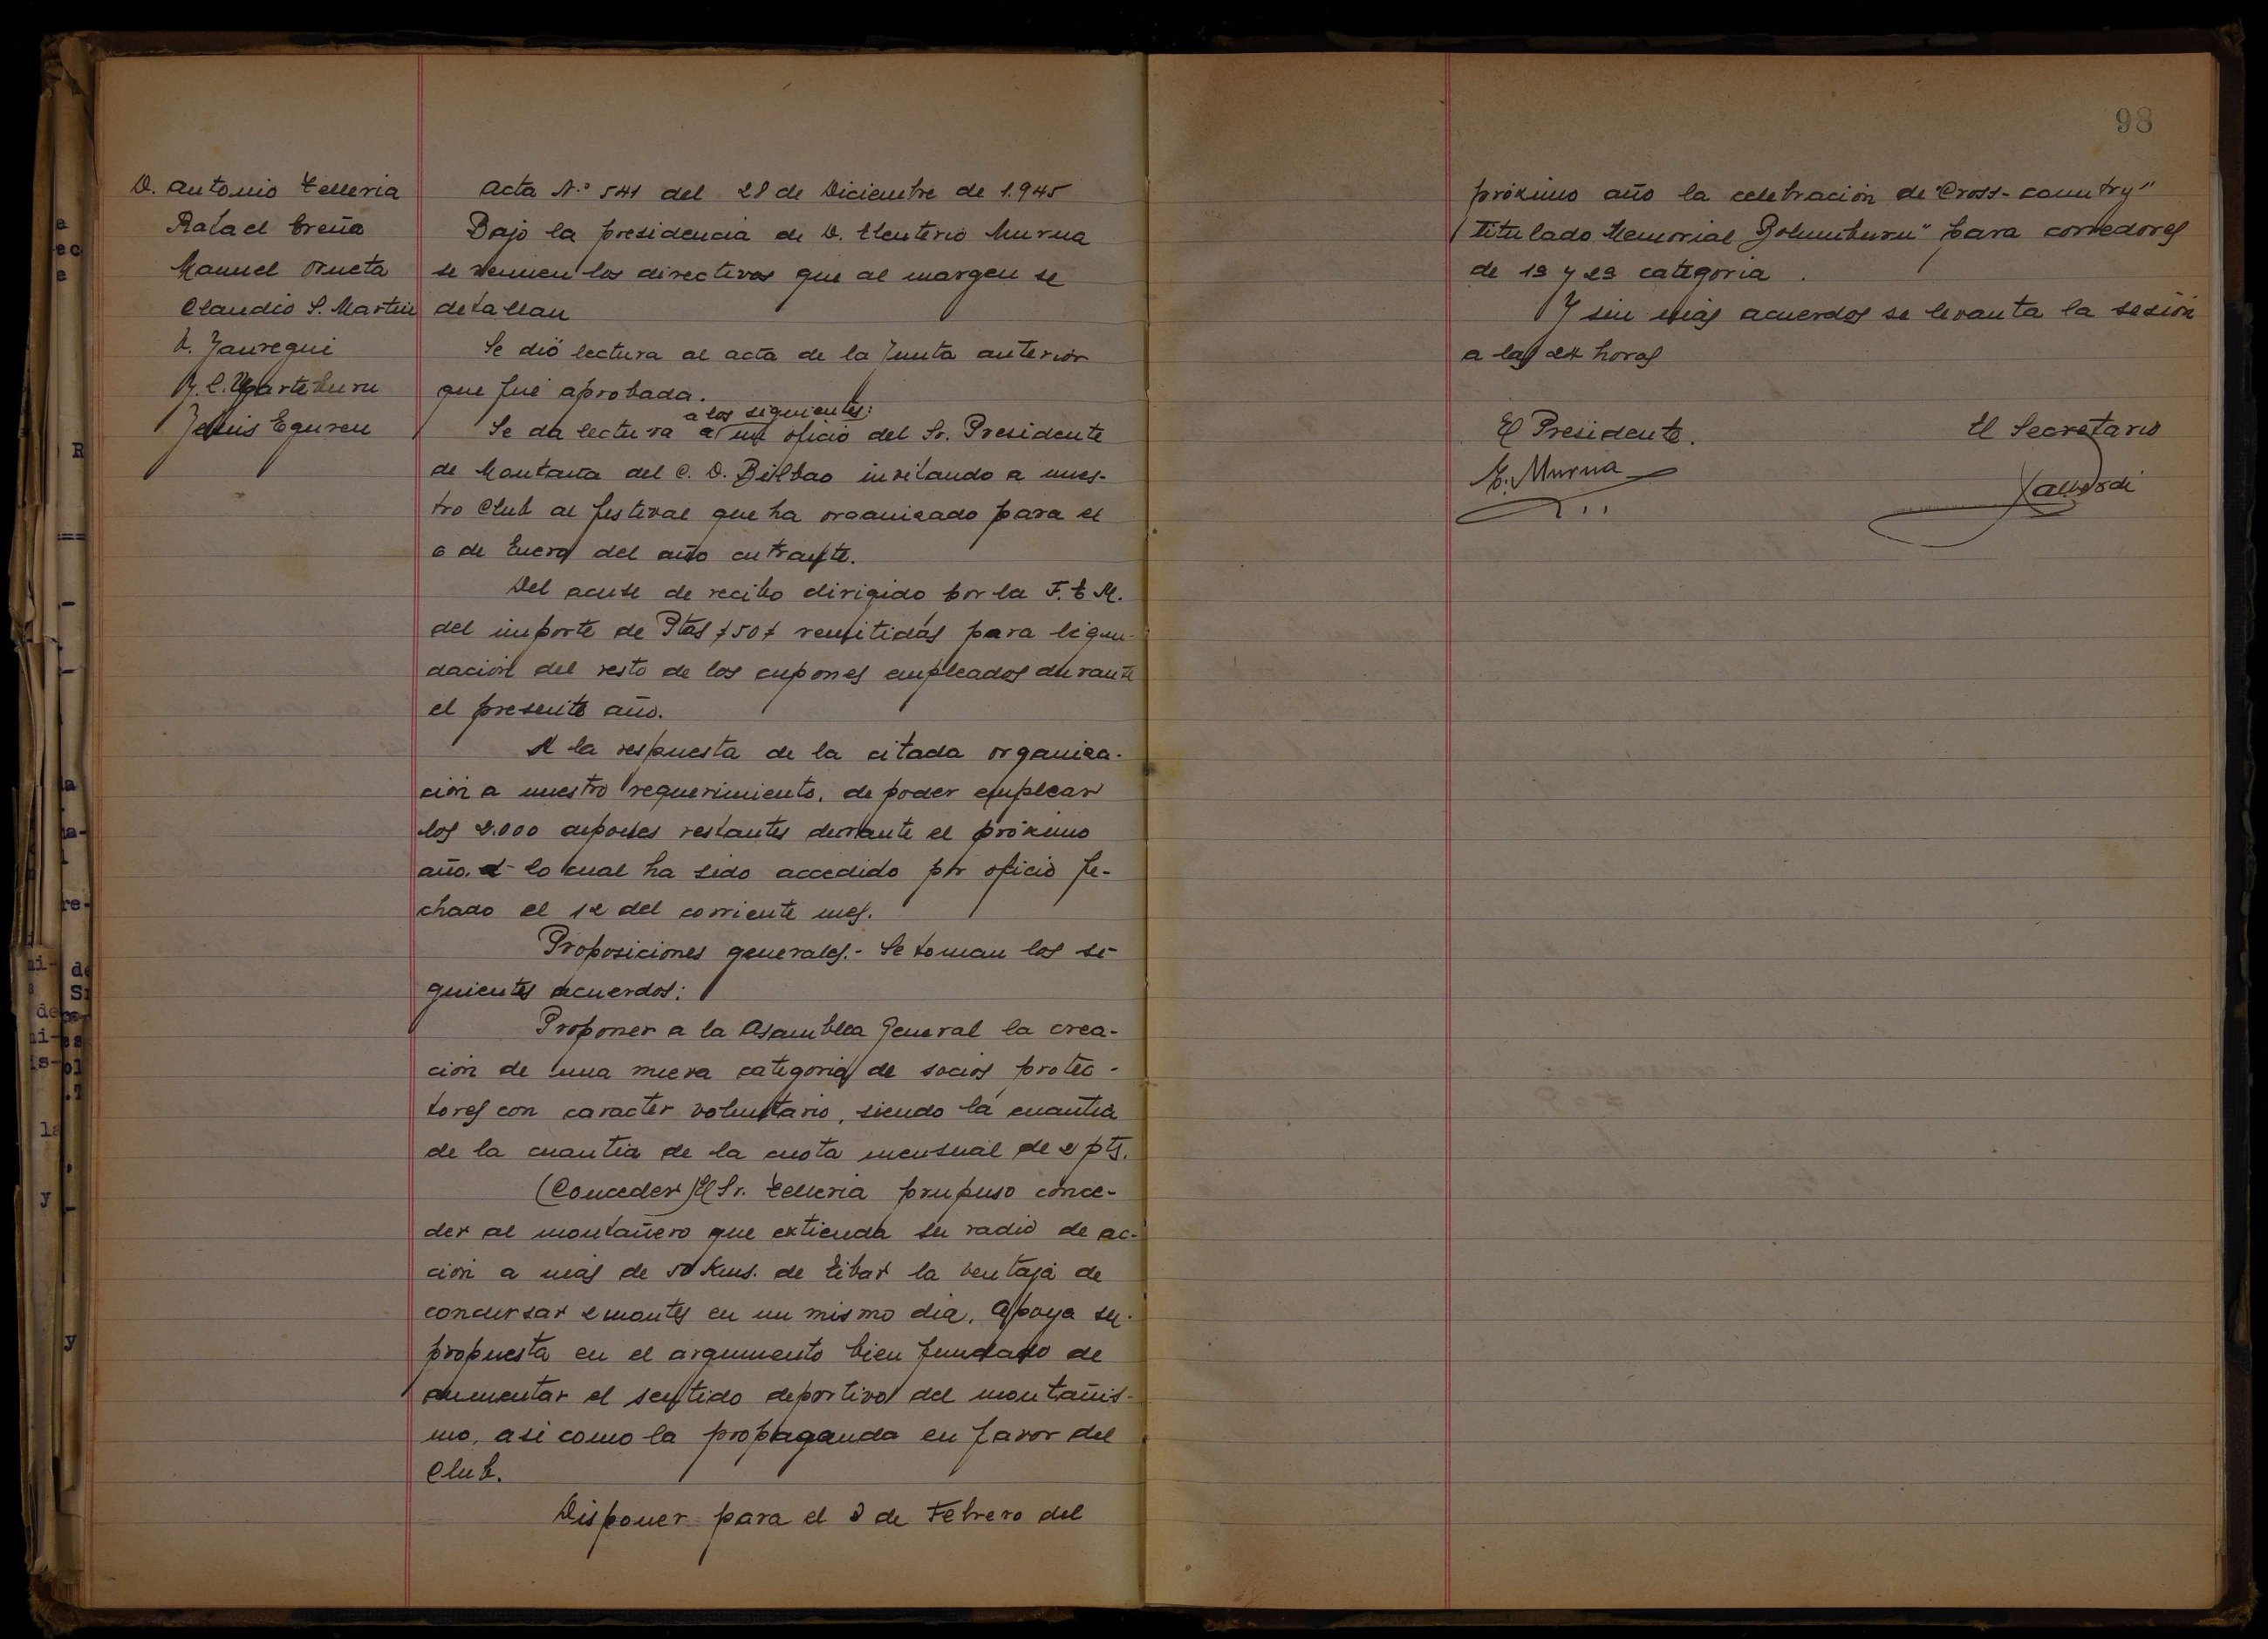 98
D. Antonio Telleria
Rafael Ereña
Manuel Orueta
Claudio S. Martin
Jauregui
Ugarteburu
Jesus Eguren
Acta N.º 541 del 28 de Diciembre de 1.945
Bajo la presidencia de D. Eleuterio Murua
se reunen los directivos que al margen se
detallan
Se dió lectura al acta de la Junta anterior
que fué aprobada.
a los siguientes:
Se da lectura a un oficio del Sr. Presidente
de Montaña del C. D. Bilbao invitando a nues-
tro Club al festival que ha organizado para el
6 de Enero del año entrante.
Del acuse de recibo dirigido por la F. E. M.
del importe de Ptas 750 remitidas para liqui-
dación del resto de los cupones empleados durante
el presente año.
A la respuesta de la citada organiza-
ción a nuestro requerimiento, de poder emplear
los 2.000 restantes durante el próximo
año. A lo cual ha sido accedido por oficio fe-
chado el 12 del corriente mes.
Proposiciones generales.- Se toman los si-
guientes acuerdos:
Proponer a la Asamblea General la crea-
ción de una nueva categoria de socios protec-
tores con caracter voluntario, siendo la cuantia
de la cuantia de la cuota mensual de 2 pts.
(Conceder) El Sr. Telleria prupuso conce-
der al montañero que extienda su radio de ac-
ción a más de 50 Kms. de Eibar la ventaja de
concursar 2 montes en un mismo dia. Apoya su
propuesta en el argumento bien fundado de
aumentar el sentido deportivo del montañis-
mo, asi como la propaganda en favor del
Club.
Disponer para el 2 de Febrero del
próximo año la celebración de "Cross-country"
Titulado Memorial Bolumburu" para corredores
de 1ª y 2ª categoria.
Y sin más acuerdos se levanta la sesión
a las 24 horas
El Presidente.
El Secretario
E. Murua